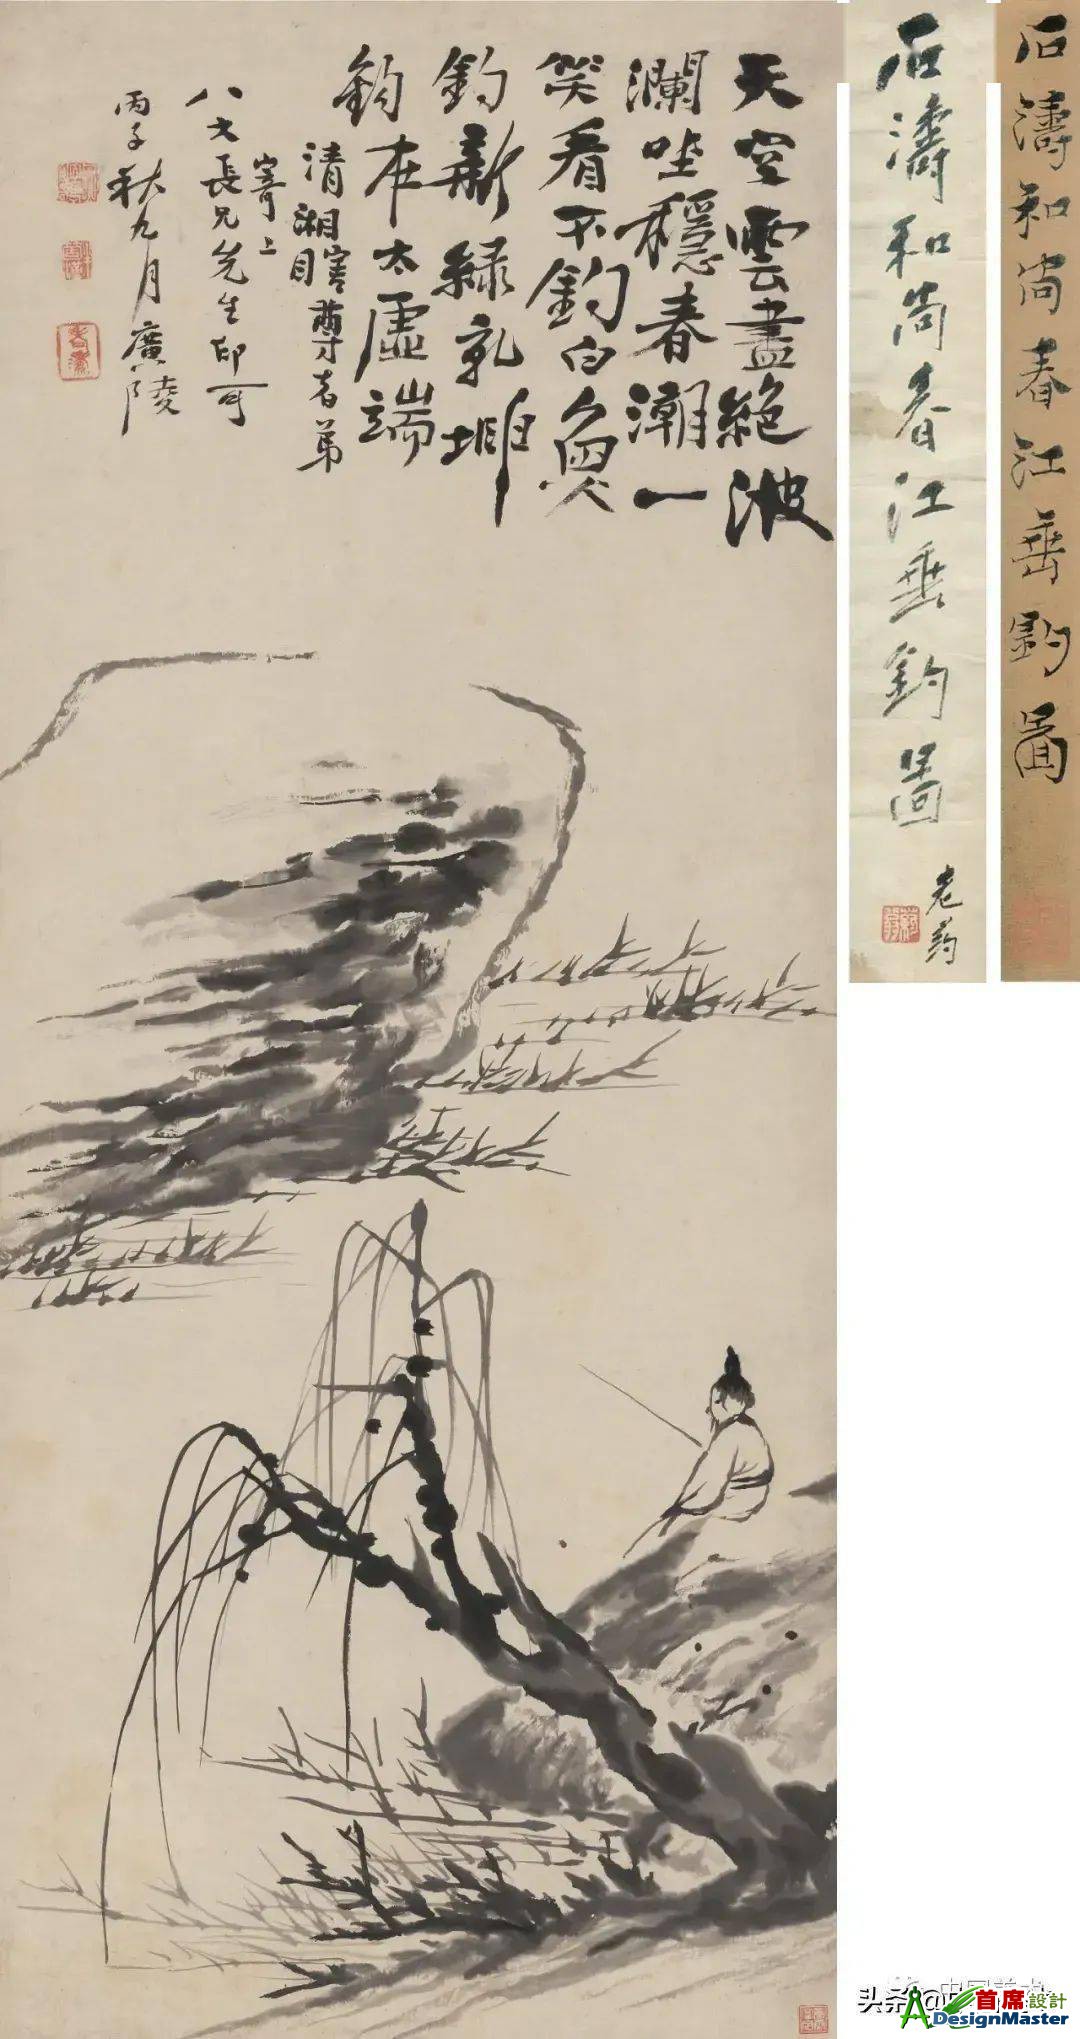 天空雲盡絶波
瀾坐穩春潮一
笑看不釣白魚
釣新綠乳埤
釣本太虛端
清湘瞎尊者弟
寄上
八大長兄先生印可
丙子秋九月廣陵
石濤和尚春江垂釣圖
老药
石濤和尚春江垂釣圖
首席設計
ADesignMaster